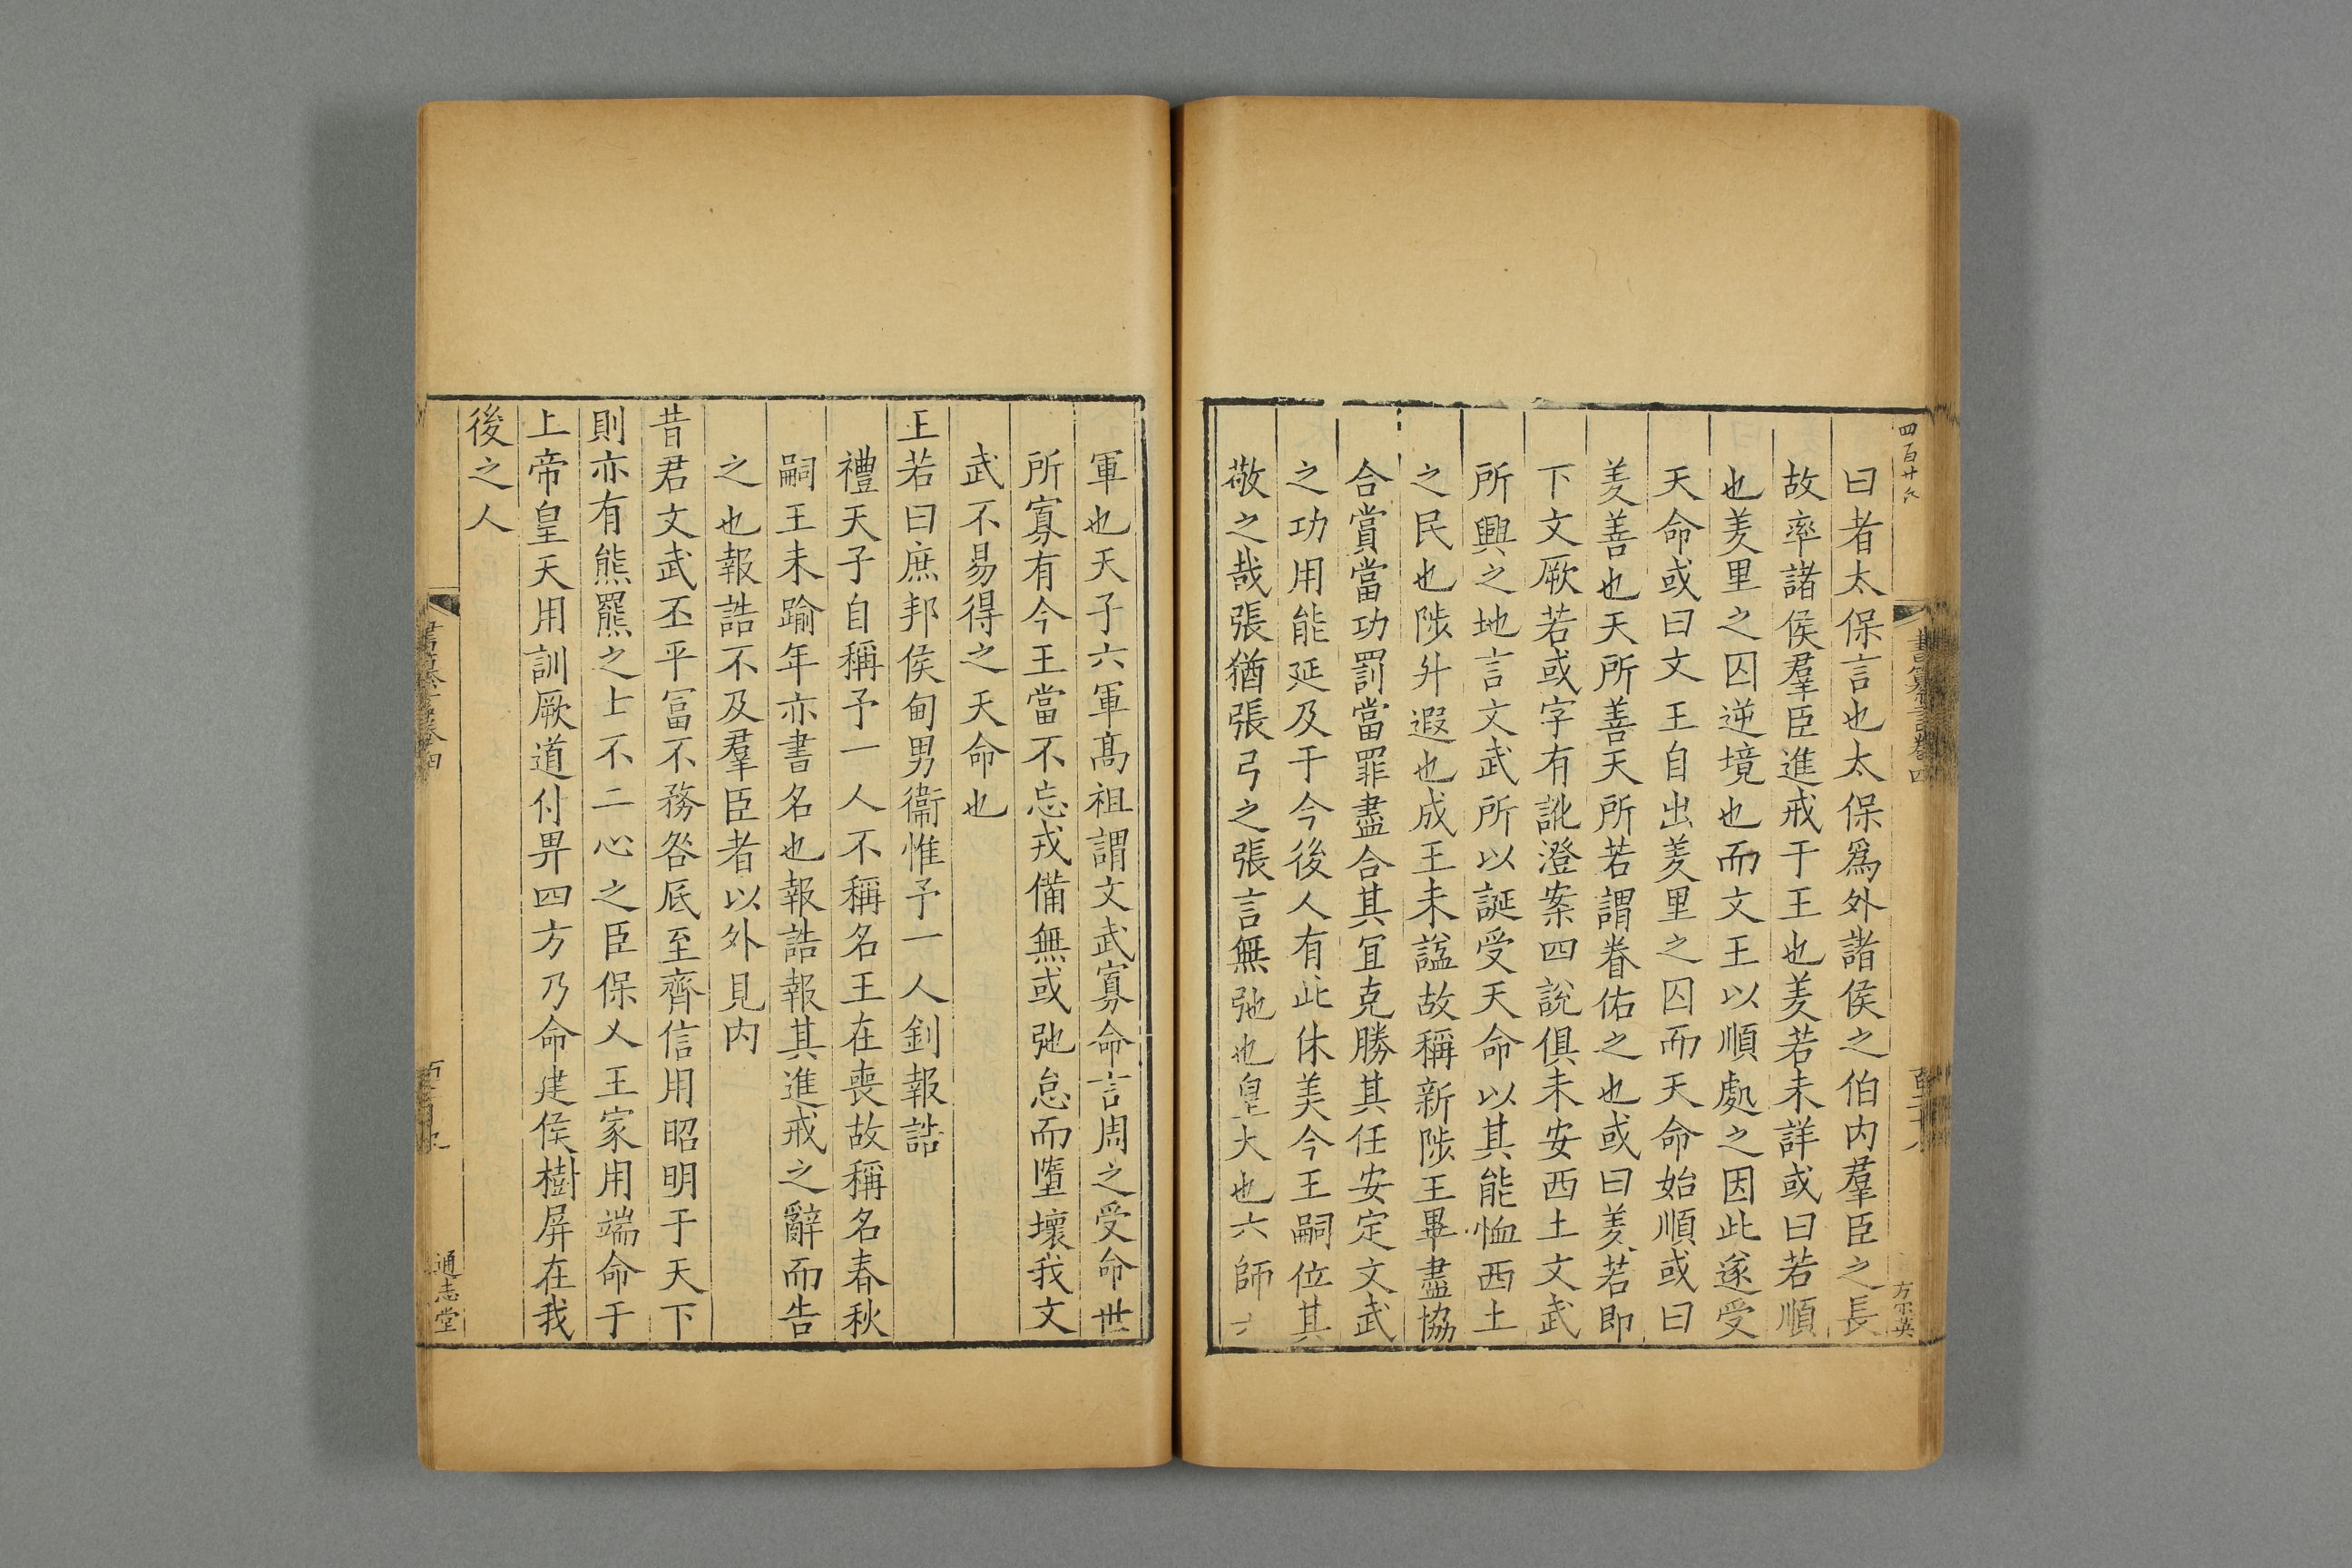 曰者太保言也太保爲外諸侯之伯内羣臣之長
故率諸侯羣臣進戒于王也羑若未詳或曰若順
也羑里之囚逆境也而文王以順處之因此遂受
天命或曰文王自出羑里之囚而天命始順或曰
羑善也天所善天所若謂眷佑之也或曰羑若即
下文厥若或字有訛澄案四說俱未安西土文武
所興之地言文武所以誕受天命以其能恤西土
之民也陟升遐也成王未諡故稱新陟王畢盡協
合賞當功罰當罪盡合其宜克勝其任安定文武
之功用能延及于今後人有此休美今王嗣位其
敬之哉張猶張弓之張言無弛也皇大也六師六
軍也天子六軍髙祖謂文武寡命言周之受命世
所寡有今王當不忘戎備無或弛怠而墮壞我文
武不易得之天命也
王若曰庶邦侯甸男衞惟予一人釗報誥
禮天子自稱予一人不稱名王在喪故稱名春秋
嗣王未踰年亦書名也報誥報其進戒之辭而告
之也報誥不及羣臣者以外見内
昔君文武丕平冨不務咎厎至齊信用昭明于天下
則亦有熊羆之士不二心之臣保乂王家用端命于
上帝皇天用訓厥道付畀四方乃命建侯樹屏在我
後之人
書纂言卷四
通志堂